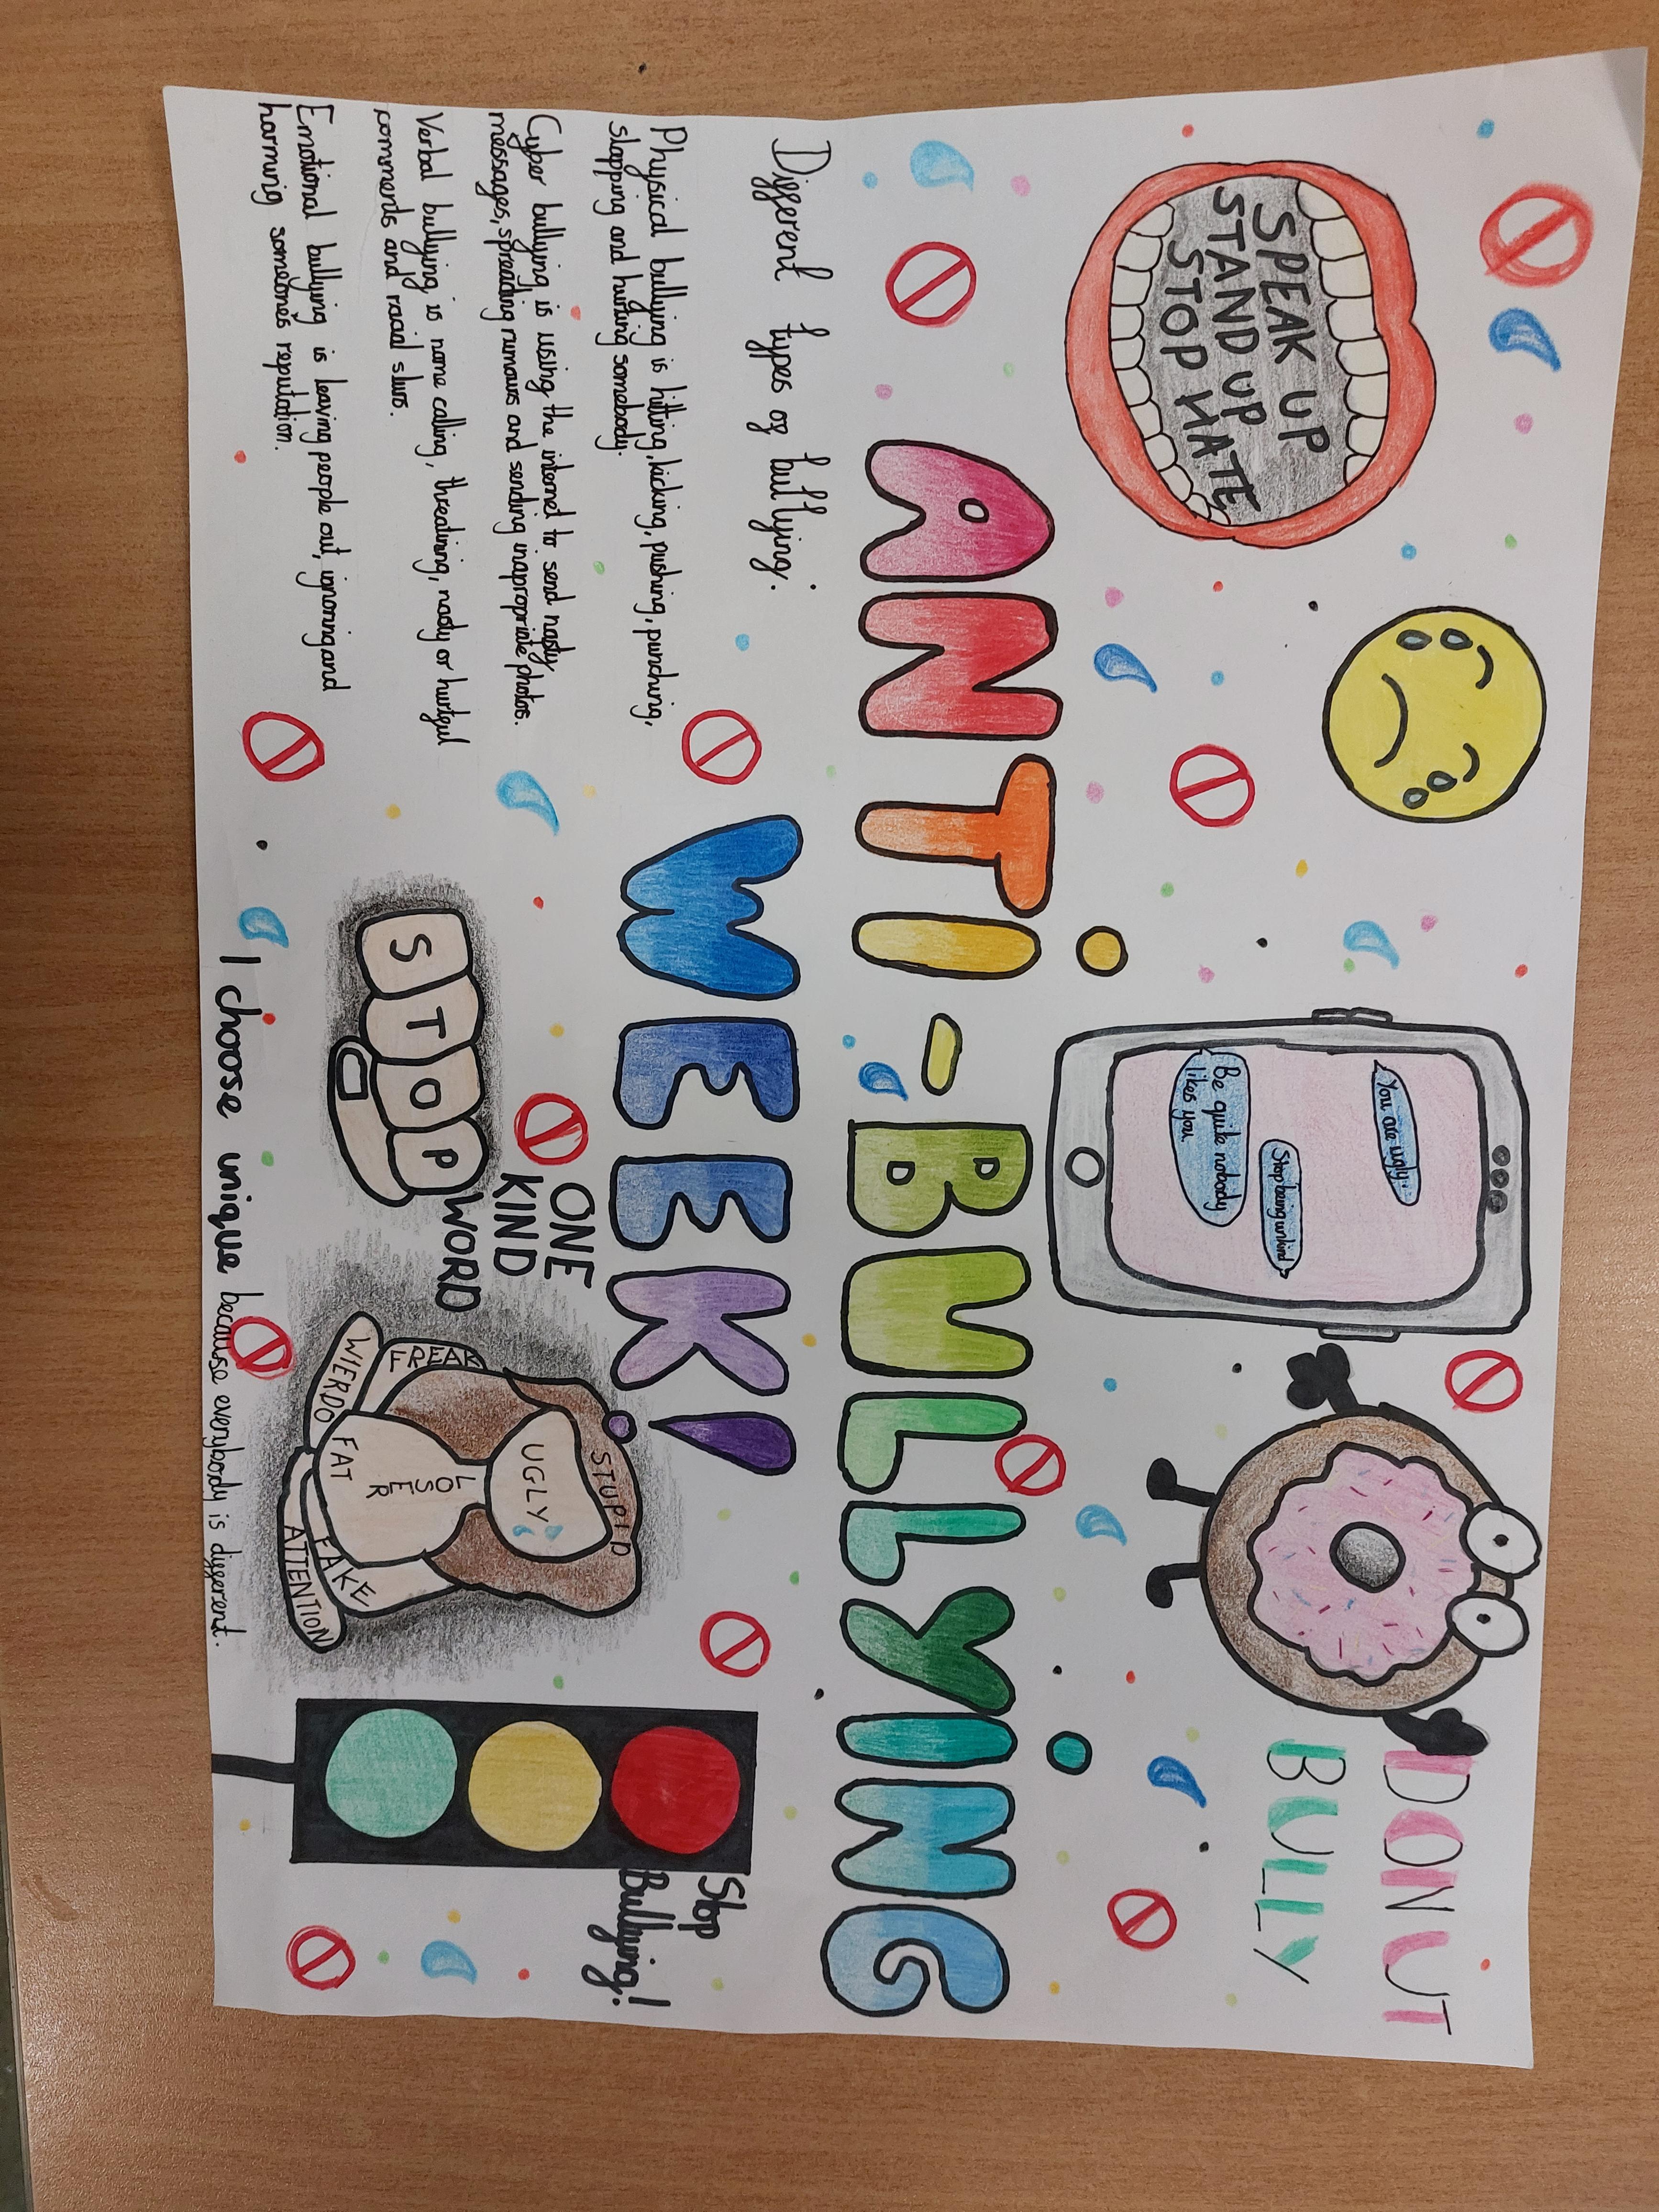 SPEAK UP
STAND UP
STOP HATE
You are ugly...
Stop being unkind
Be quite nobody
likes you.
DONUT
BULLY
ANTi-BULLYiNG
WEEK!
Different types of bullying:
Physical bullying is hitting, kicking, pushing, punching,
slapping and hurting somebody.
Cyber bullying is using the internet to send nasty
messages, spreading rumours and sending inapropriate photos.
Verbal bullying is name calling, threatining, nasty or hurtful
comments and racial slurs.
Emotional bullying is leaving people out, ignoring and
harming someones reputation.
STOP
ONE
KIND
WORD
STUPID
UGLY
FREAK
LOSER
WIERDO
FAT
FAKE
ATTENTION
Stop
Bullying!
I choose unique because everybody is different.